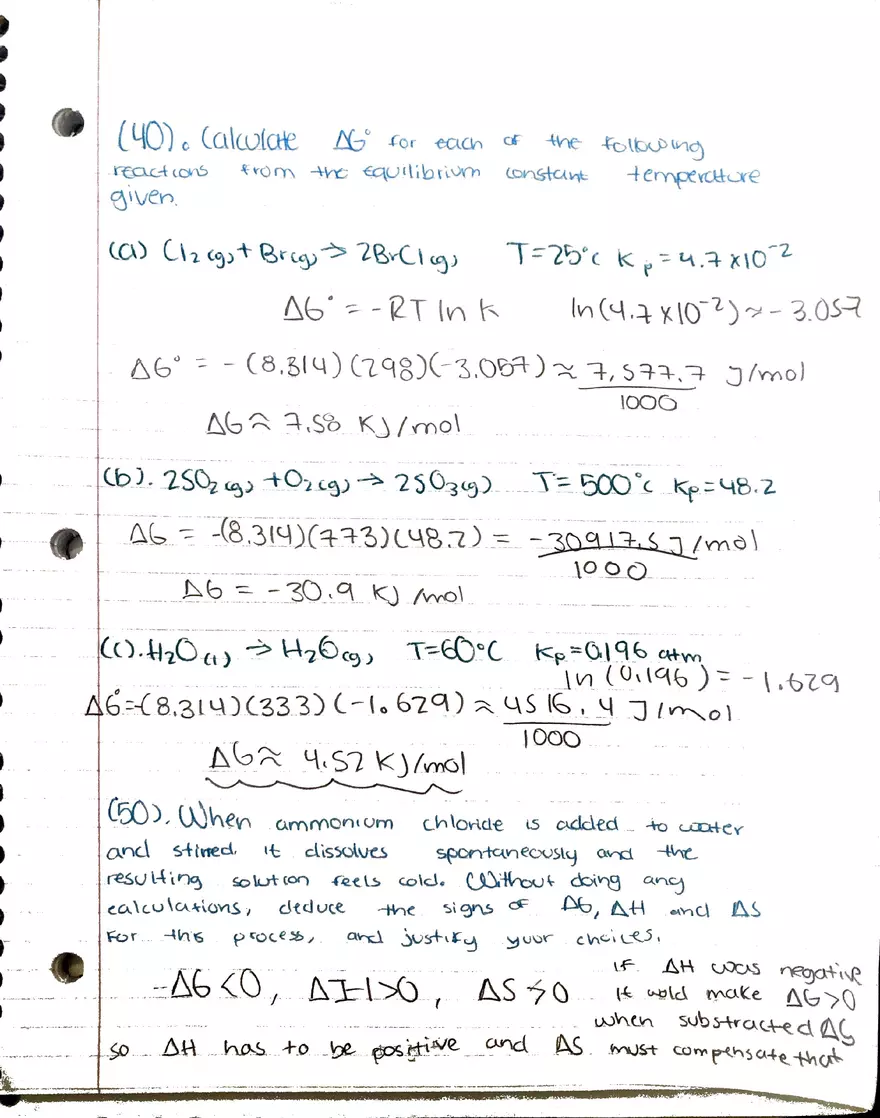 (40). Calculate ΔG° for each of the following
reactions from the equilibrium constant temperature
given.
(a) Cl2(g) + Br(g) → 2BrCl(g) T=25°C Kp = 4.7 x10^-2
ΔG° = -RT ln K ln(4.7 x10^-2) ≈ -3.057
ΔG° = -(8.314)(298)(-3.057) ≈ 7,577.7 J/mol
1000
ΔG ≈ 7.58 KJ/mol
(b). 2SO2(g) + O2(g) → 2SO3(g) T= 500°C Kp=48.2
ΔG = -(8.314)(773)(48.2) = -30917.5 J/mol
1000
ΔG = -30.9 KJ/mol
(c). H2O(l) → H2O(g) T=60°C Kp=0.196 atm
ln(0.196) = -1.629
ΔG°=-(8.314)(333)(-1.629) ≈ 4516.4 J/mol
1000
ΔG ≈ 4.52 KJ/mol
(50). When ammonium chloride is added to water
and stirred. it dissolves spontaneously and the
resulting solution feels cold. Without doing any
calculations, deduce the signs of ΔG, ΔH and ΔS
For this process, and justify your choices.
-ΔG<0, ΔH>0, ΔS>0 if ΔH was negative
it wold make ΔG>0
when substracted ΔG
so ΔH has to be positive and ΔS must compensate that